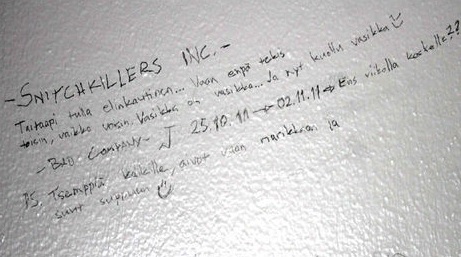 - SNITCHKILLERS INC. -
Taitaapi tulla elinkautinen... Vaan enpä tekis
toisin, vaikka voisin. Vasikka on vasikka... Ja nyt kuollu vasikka
- BAD COMPANY - J 25.10.11 → 02.11.11 → Ens viikolla kakolle??
PS. Tsemppiä kaikille, aivot vaan narikkaan ja
suut suppuun